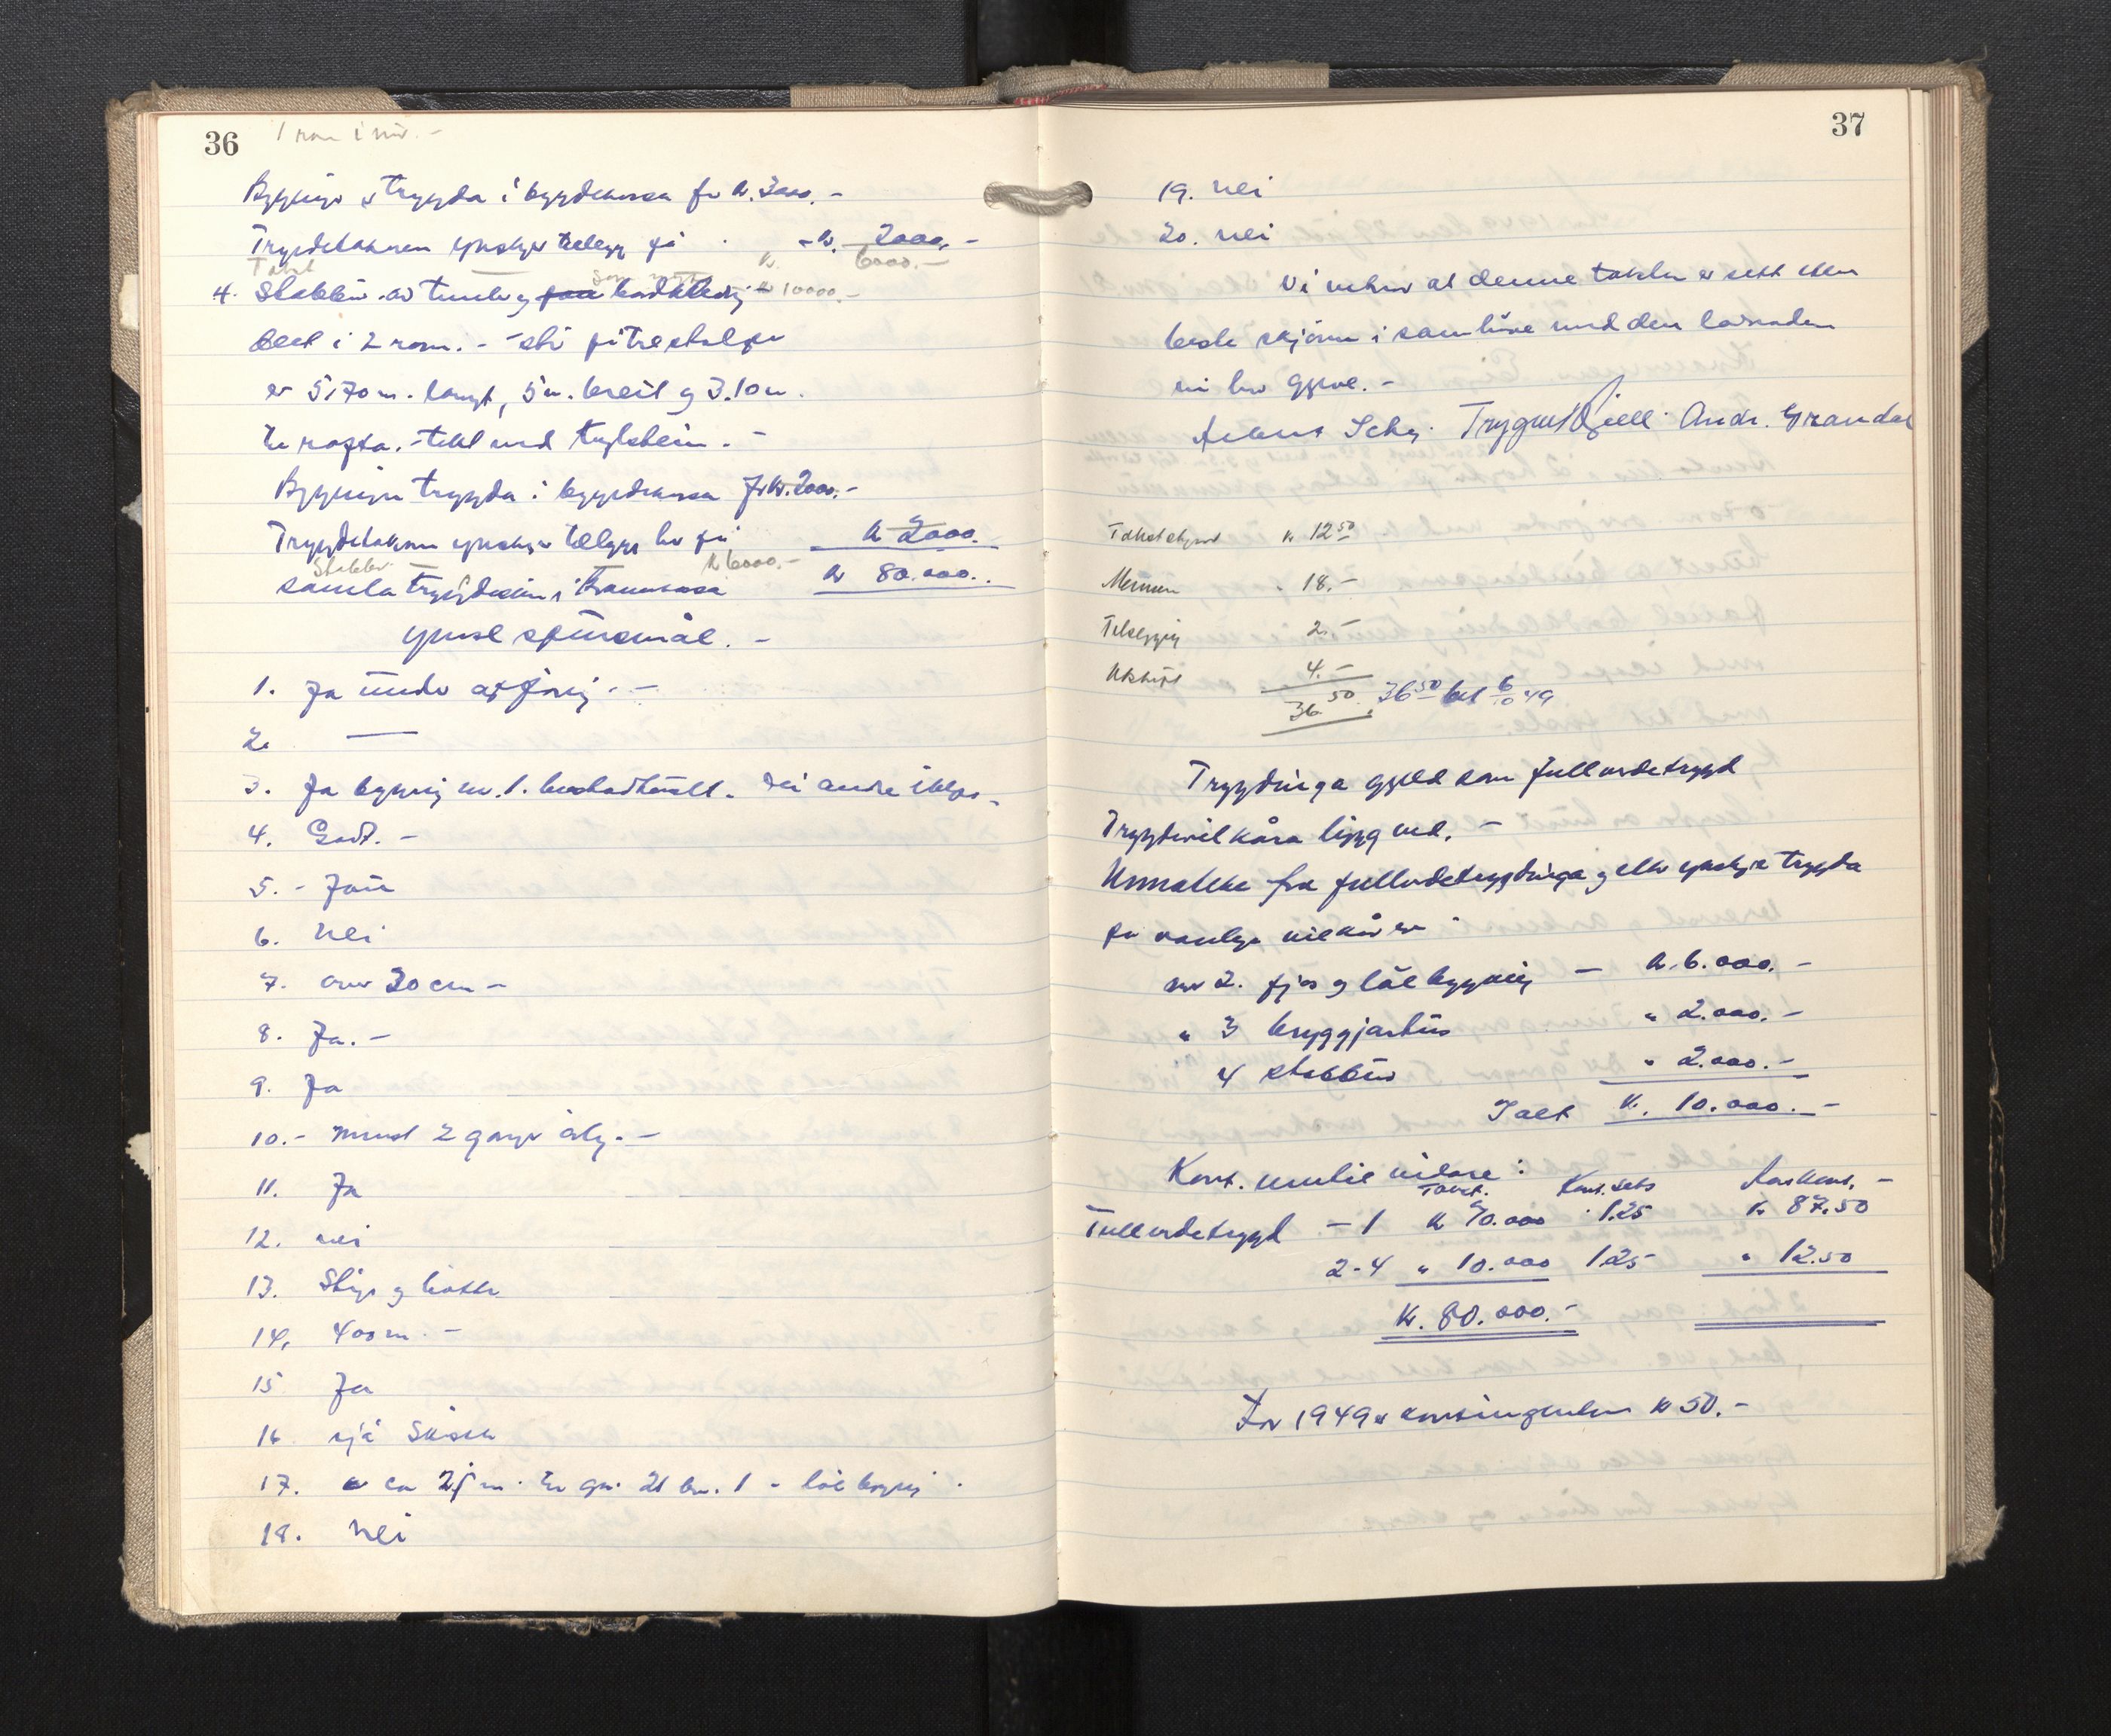 36
1 rom i
Bygningen er trygda i bygdekassa for kr. 3000.-
Trygdetakaren ynskjer tillegg på - kr. 2000.-
Takst kr. 6000.-
4. Stabbur av timbr og bordkledning kr 10000.-
delt i 2 rom. - står på trestolpar
er 5.70 m. langt, 5 m. breit og 3.10 m.
til rafta. - tekt med teglstein. -
Bygningen trygda i bygdekassa for kr. 2000.-
Trygdetakaren ynskjer tillegg her på kr 2000.
Stabbur kr 6000.-
samla trygdesum i Brannkassa kr 80.000.
ymse spursmål. -
1. Ja under oppføring. -
2. —
3. Ja bygning nr. 1. dei andre ikkje.
4. Godt. -
5. - Jau
6. Nei
7. over 30 cm -
8. Ja. -
9. Ja
10. - minst 2 gonger årleg. -
11. Ja
12. nei
13. Stige og bøtter
14. 400 m. -
15 Ja
16 sjå skissen
17. ca 25 m. bn. 1 - løebygning.
18. Nei
37
19. Nei
20. Nei
Vi vitnar at denne taksten er sett etter
beste skjønn i samhøve med den lovnaden
vi har gjeve. -
Trygve Kjell Andr. Grandal
Takstskjema kr 12 50
Mennene " 18.-
Tilsegging 2.-
Utskrift 4.-
36. 50 36 50 bet 6/10 49
Trygdinga gjeld som fullverdetrygd
Trygdevilkåra ligg ved. -
Unnateke fra fullverdetrygdinga og elles ynskje trygda
på vanlege vilkår er
nr 2. fjos og løebygning - kr. 6.000.-
" 3 bryggjarhus " 2.000.-
4 stabbur " 2.000.-
I alt kr. 10.000.-
Kont. vilare:
Takst. Kont. sats Årskont. -
Fullverdetrygd - 1 kr 70.000 1.25 kr 87.50
2-4 " 10.000 1.25 " 12.50
kr. 80.000.-
For 1949 er kontingenten kr 50.-